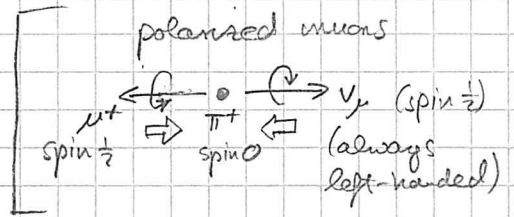 polarized muons
μ+ π+ νμ (spin 1/2)
spin 1/2 spin 0 (always
left-handed)